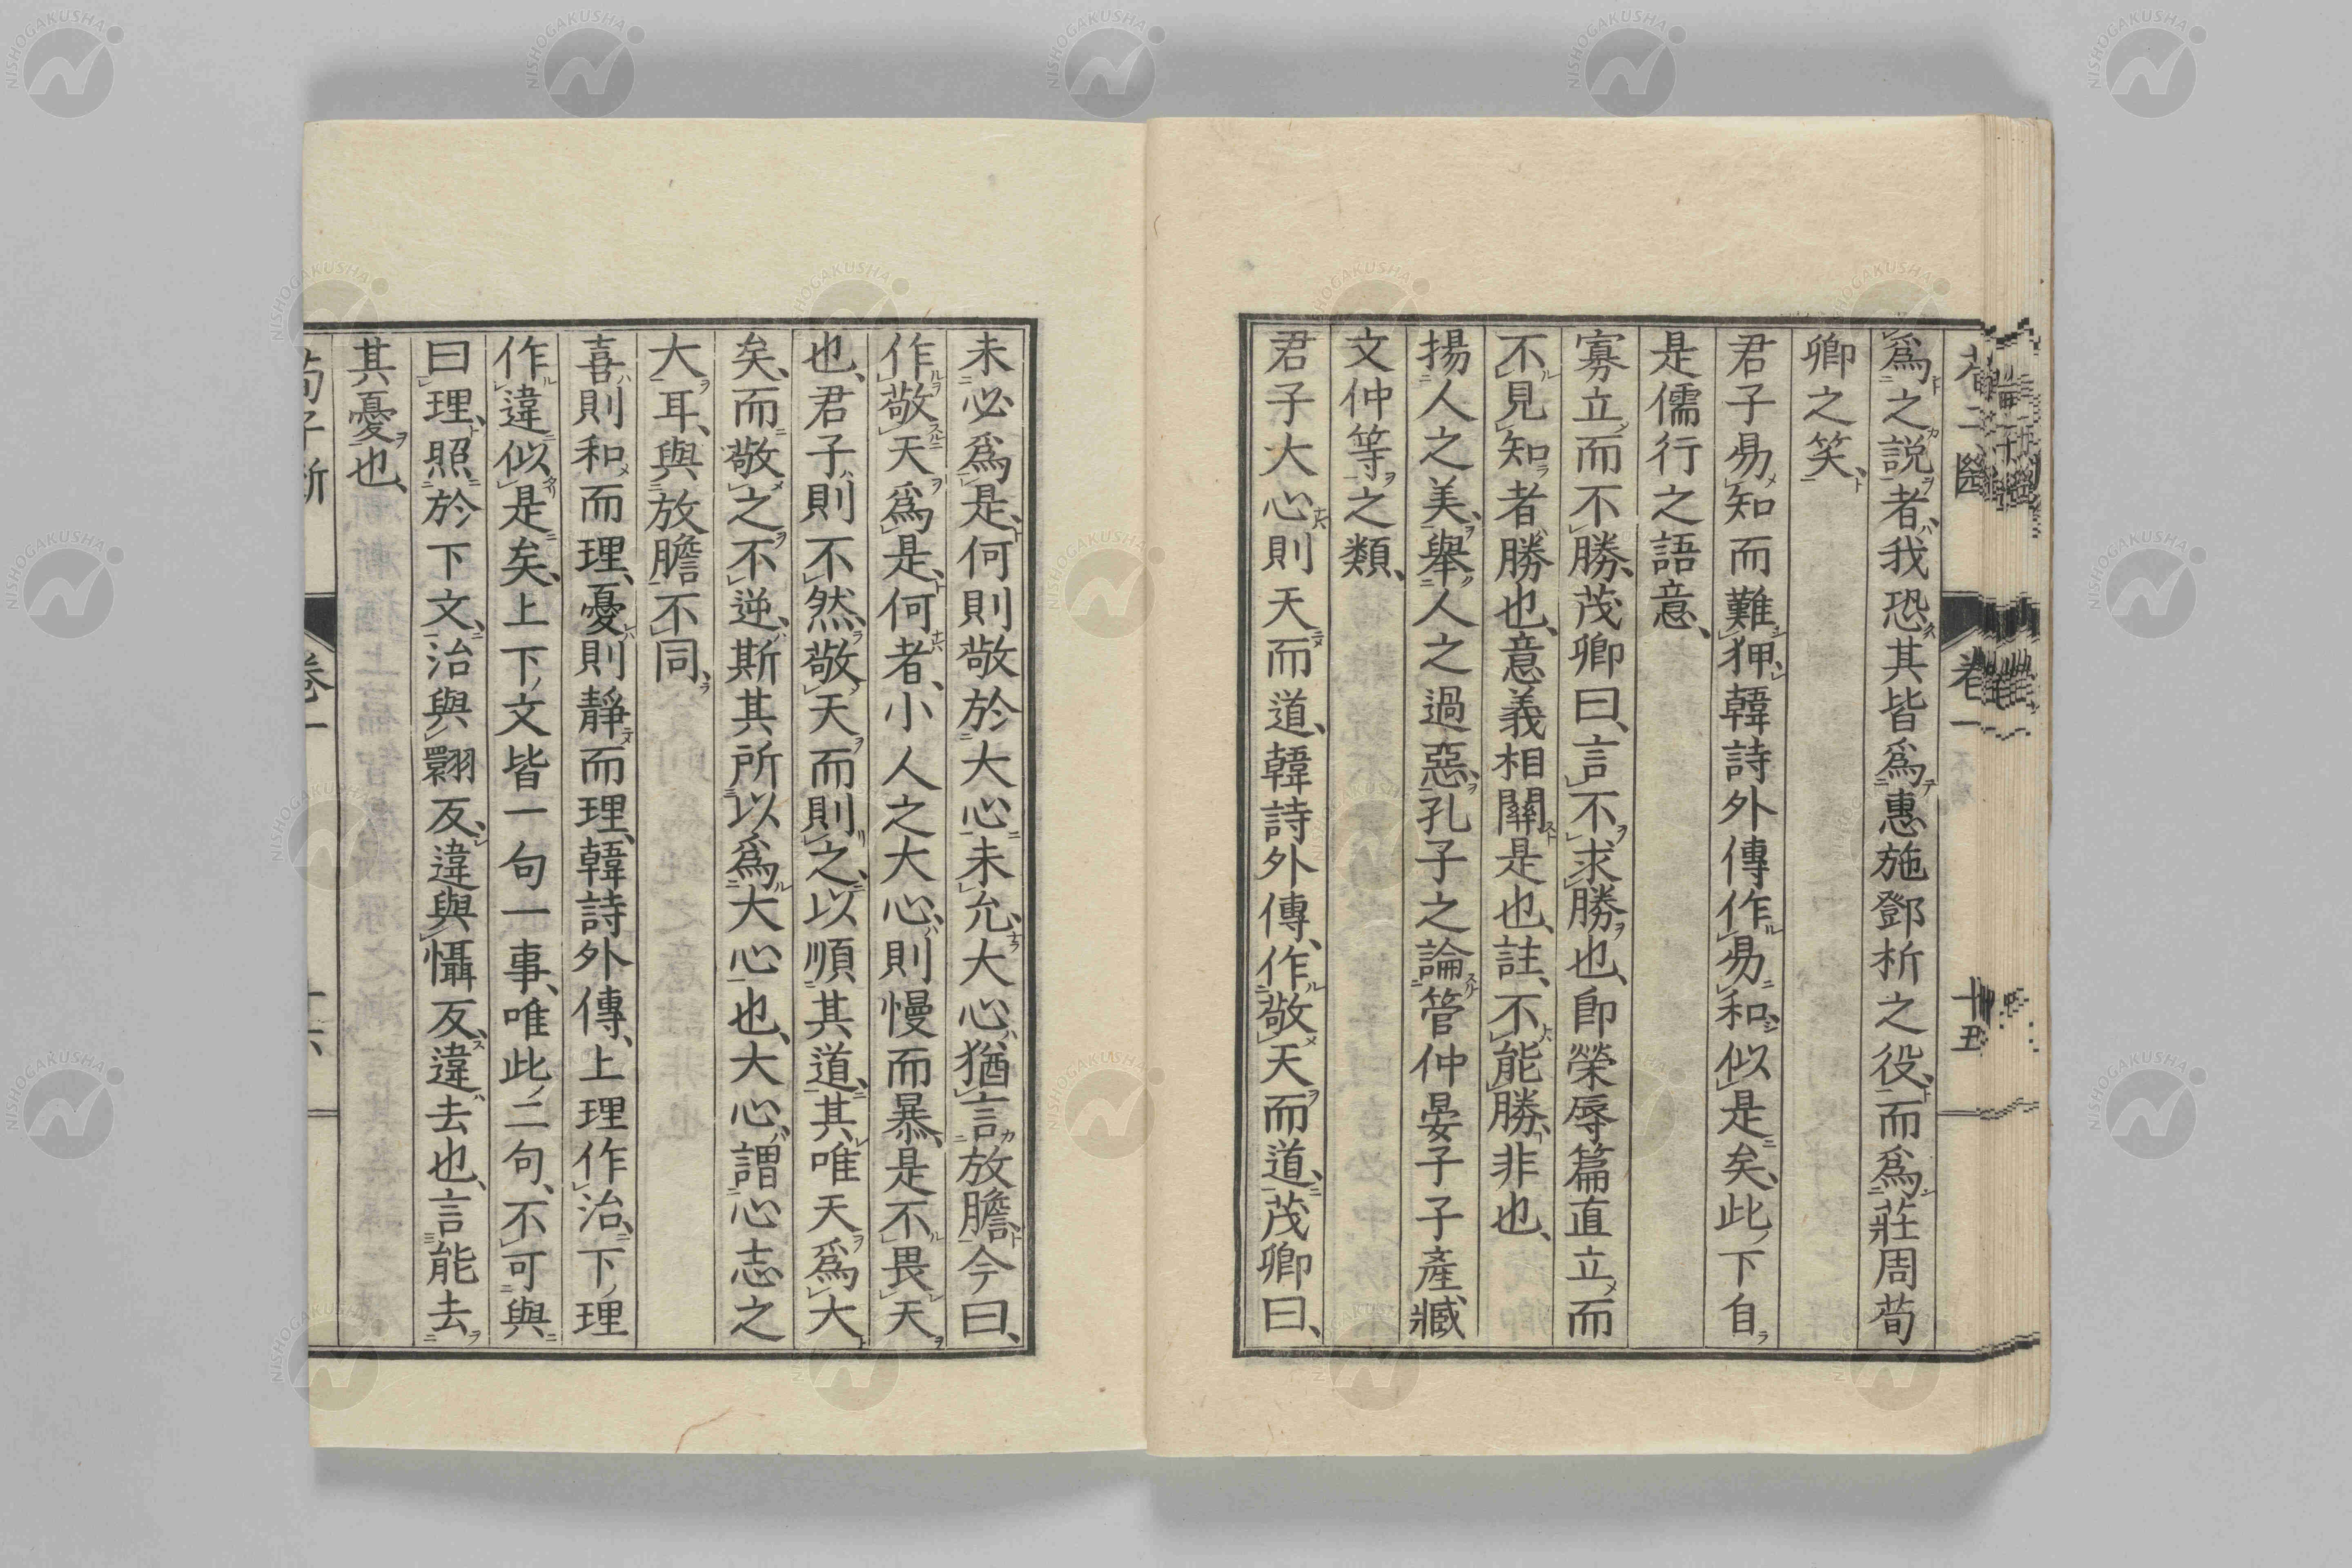 爲之説者、我恐其皆爲惠施鄧析之役、而爲莊周荀
卿之笑、
君子易知而難狎、韓詩外傳作易和、似是矣、此下自
是儒行之語意、
寡立而不勝、茂卿曰、言不求勝也、卽榮辱篇直立而
不見知者勝也、意義相關是也、註、不能勝、非也、
揚人之美、舉人之過惡、孔子之論管仲晏子子產、臧
文仲等之類、
君子大心則天而道、韓詩外傳、作敬天而道、茂卿曰、
未必爲是、何則敬於大心未允、大心猶言放膽、今曰、
作敬天爲是、何者、小人之大心、則慢而暴、是不畏天
也、君子則不然、敬天而則之、以順其道、其唯天爲大
矣、而敬之不逆、斯其所以爲大心也、大心、謂心志之
大耳、與放膽不同、
喜則和而理、憂則靜而理、韓詩外傳、上理作治、下理
作違、似是矣、上下文皆一句一事、唯此二句、不可與
曰理、照於下文、治與翾反、違與懾反、違去也、言能去
其憂也、
卷一
十五
NISHOGAKUSHA